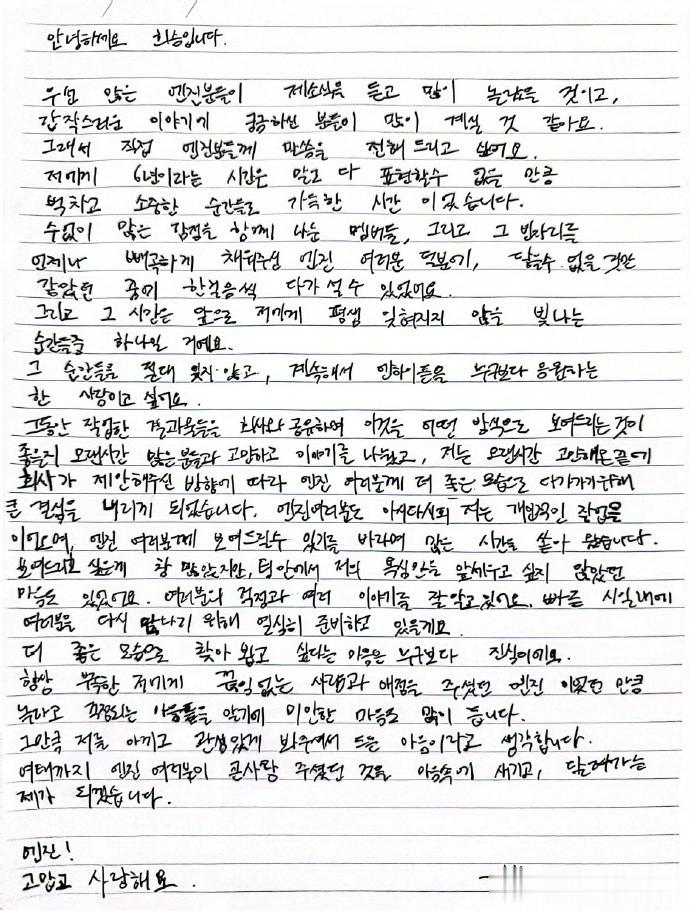 안녕하세요 희승입니다.
우선 많은 엔진분들이 제소식을 듣고 많이 놀랐을 것이고,
갑작스러운 이야기에 궁금하신 분들이 많이 계실 것 같아요.
그래서 직접 엔진분들께 말씀을 전해 드리고 싶어요.
저에게 6년이라는 시간은 말로 다 표현할수 없을 만큼
벅차고 소중한 순간들로 가득한 시간 이었습니다.
수없이 많은 감정을 함께 나눈 멤버들, 그리고 그 빈자리를
언제나 빼곡하게 채워주신 엔진 여러분 덕분에, 닿을수 없을 것만
같았던 꿈에 한걸음씩 다가 설 수 있었어요.
그리고 그 시간은 앞으로 저에게 평생 잊혀지지 않을 빛나는
순간들중 하나일 거예요.
그 순간들을 절대 잊지 않고, 계속해서 엔하이픈을 누구보다 응원하는
한 사람이고 싶어요.
그동안 작업한 결과물들을 회사와 공유하며 이것을 어떤 방식으로 보여드리는 것이
좋을지 오랜시간 많은 분들과 고민하고 이야기를 나눴고, 저는 오랜시간 고민해온 끝에
회사가 제안해주신 방향에 따라 엔진 여러분께 더 좋은 모습으로 다가가기위해
큰 결심을 내리게 되었습니다. 엔진여러분도 아시다시피 저는 개인적인 작업을
이어오며, 엔진 여러분께 보여드릴수 있기를 바라며 많은 시간을 쏟아 왔습니다.
보여드리고 싶은게 참 많았지만, 팀 안에서 저의 욕심만을 앞세우고 싶지 않았던
마음도 있었어요. 여러분의 걱정과 여러 이야기를 잘 알고 있어요. 빠른 시일내에
여러분을 다시 만나기 위해 열심히 준비하고 있을게요.
더 좋은 모습으로 찾아 뵙고 싶다는 마음은 누구보다 진심이에요.
항상 부족한 저에게 끊임없는 사랑과 애정을 주셨던 엔진 이었던 만큼
놀라고 걱정되는 마음들을 알기에 미안한 마음도 많이 듭니다.
그만큼 저를 아끼고 관심있게 봐주셔서 드는 마음이라고 생각합니다.
여태까지 엔진 여러분이 큰사랑 주셨던 것을 마음속에 새기고, 달려가는
제가 되겠습니다.
엔진!
고맙고 사랑해요.